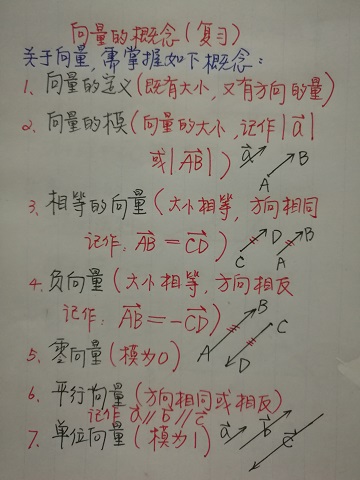 向量的概念(复习)
关于向量,需掌握如下概念:
1、向量的定义(既有大小,又有方向的量)
2、向量的模(向量的大小,记作|a⃗|
或|AB⃗|) a⃗ A B
3、相等的向量(大小相等,方向相同
记作:AB⃗=CD⃗) C D A B
4、负向量(大小相等,方向相反
记作:AB⃗=-CD⃗) A B C D
5、零向量(模为0)
6、平行向量(方向相同或相反)
记作a⃗∥b⃗∥c⃗
7、单位向量(模为1) a⃗ b⃗ c⃗